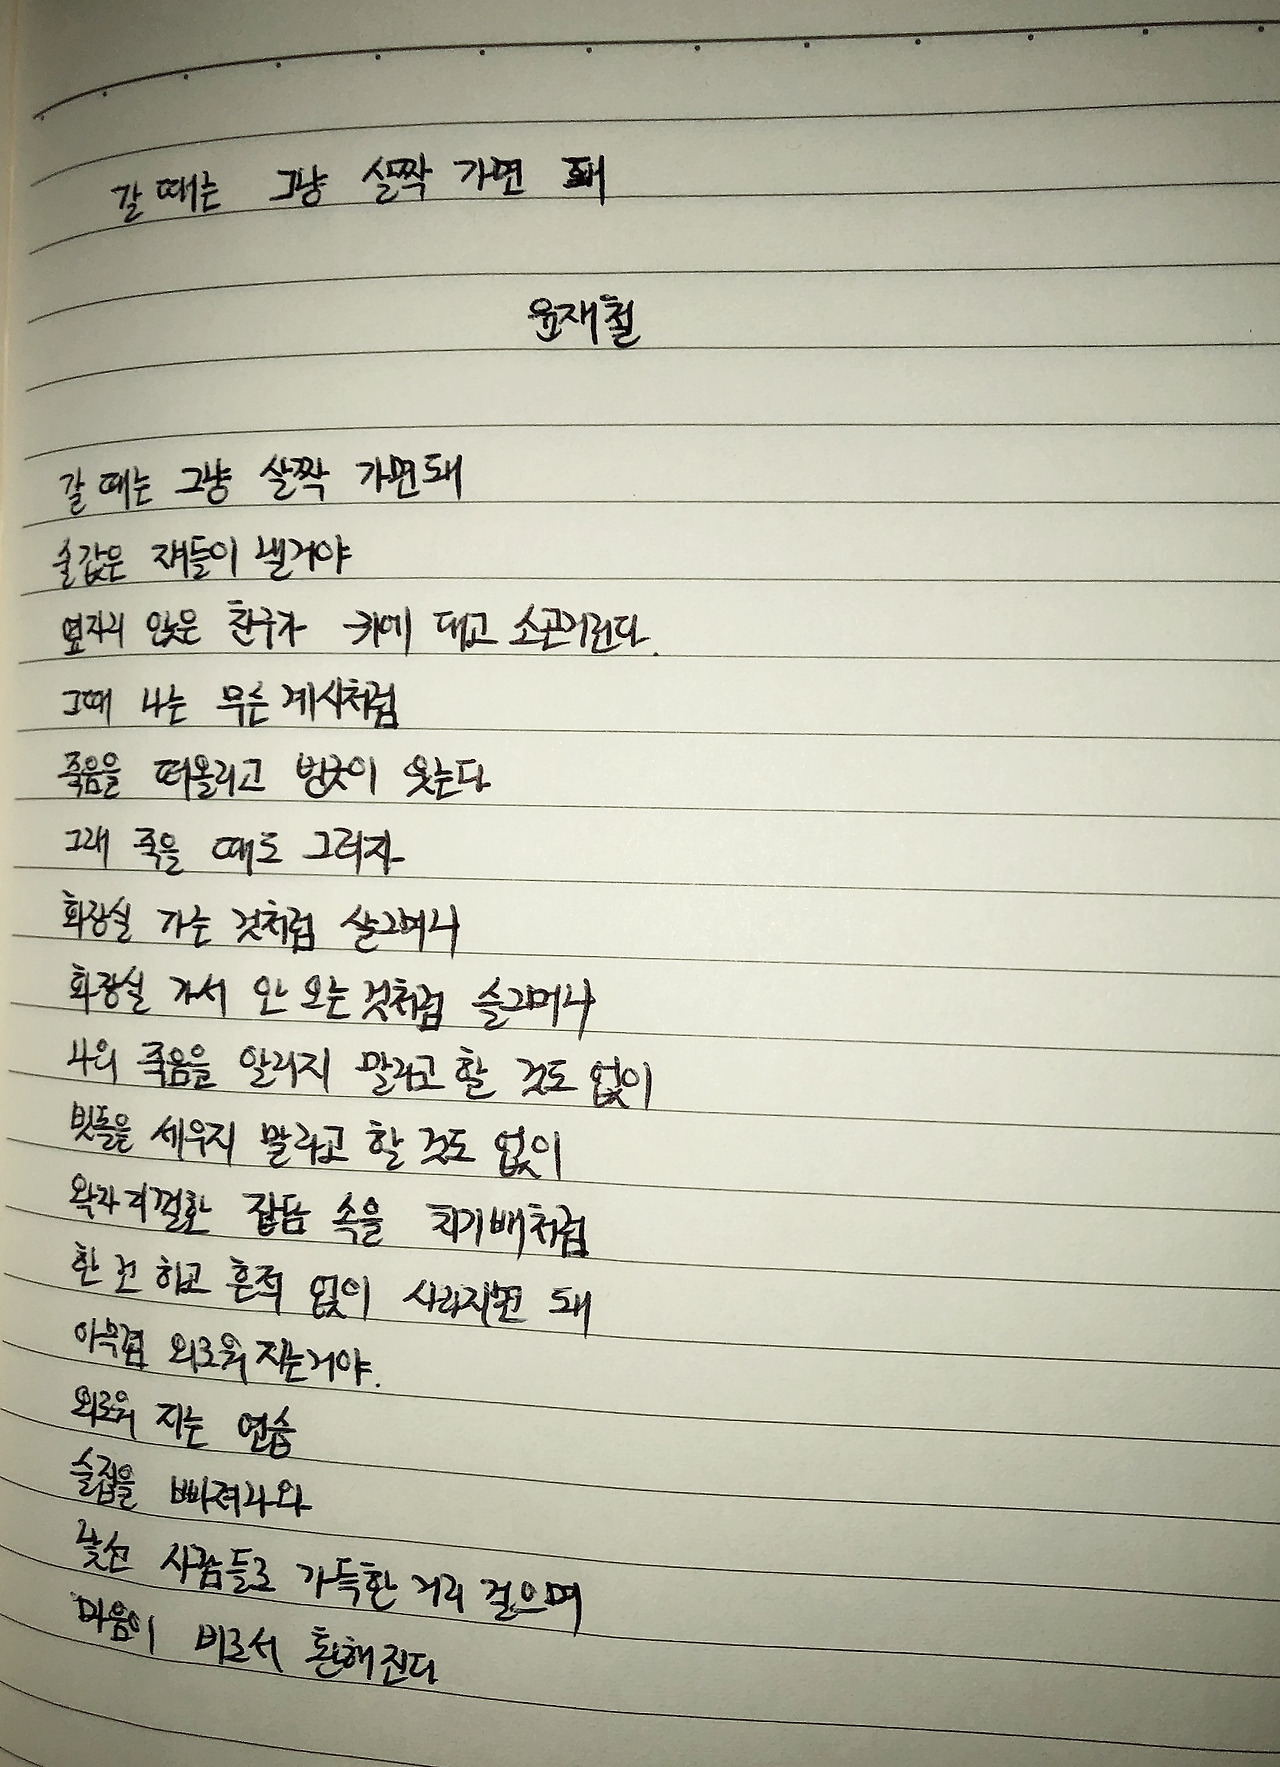 갈 때는 그냥 살짝 가면 돼
윤재철
갈 때는 그냥 살짝 가면 돼
술값은 쟤들이 낼거야
옆자리 앉은 친구가 귀에 대고 소곤거린다.
그때 나는 무슨 계시처럼
죽음을 떠올리고 빙긋이 웃는다
그래 죽을 때도 그러자
화장실 가는 것처럼 슬그머니
화장실 가서 안 오는 것처럼 슬그머니
나의 죽음을 알리지 말라고 할 것도 없이
빗돌을 세우지 말라고 할 것도 없이
왁자지껄한 잡담 속을 치기배처럼
한 건 하고 흔적 없이 사라지면 돼
아무렴 외로워 지는거야.
외로워 지는 연습
술집을 빠져나와
낯선 사람들로 가득한 거리 걸으며
마음이 비로서 환해진다